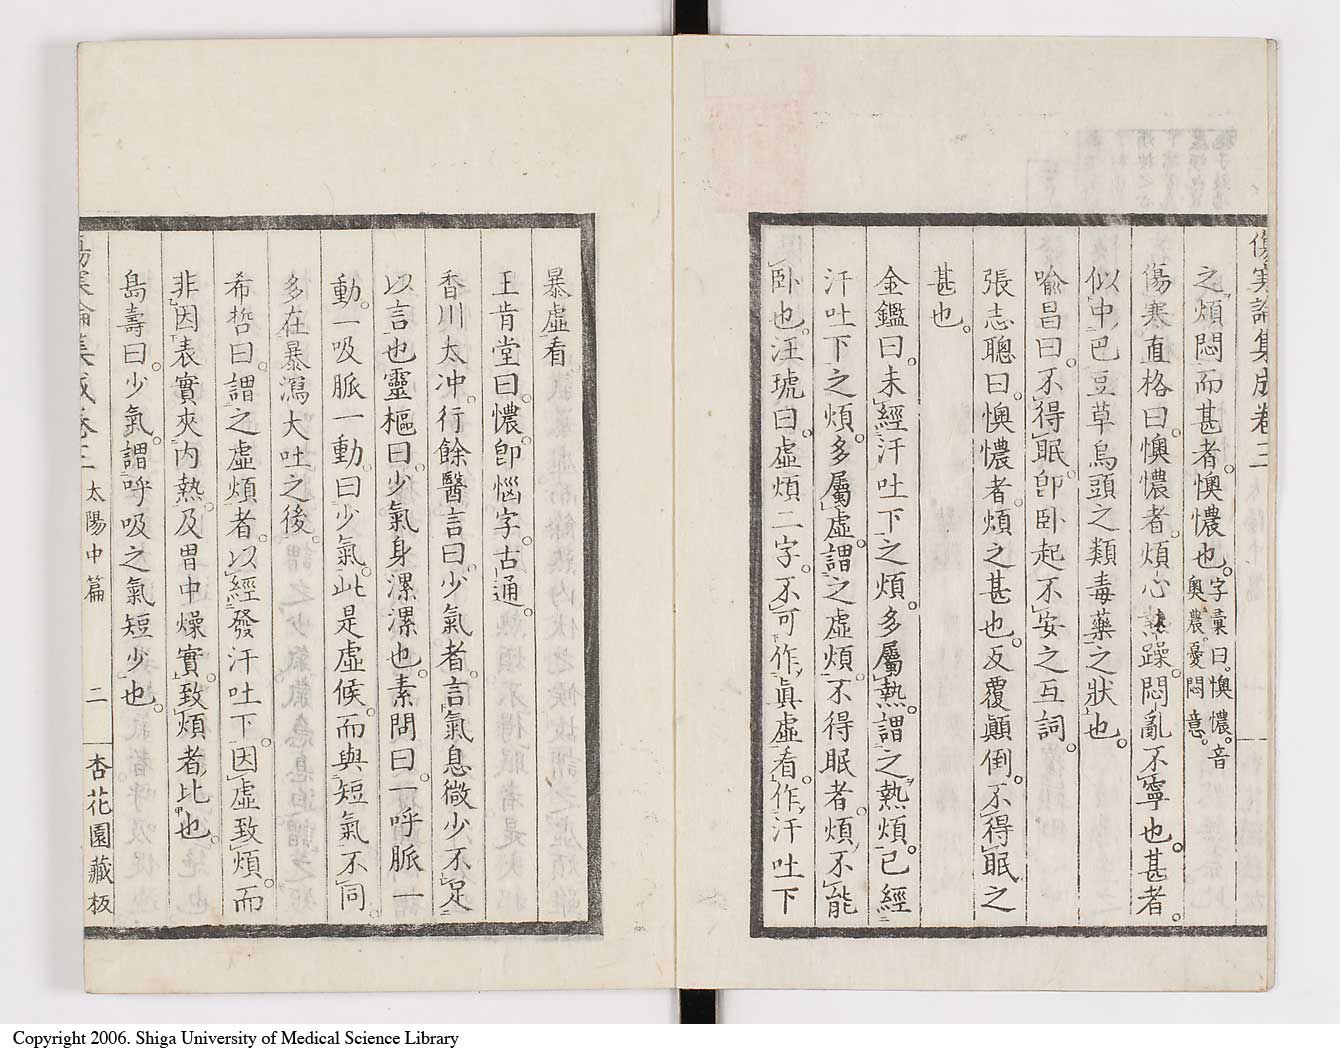 傷寒論集成卷三
之煩悶而甚者懊憹也。字彙曰。懊憹。音奧農。憂悶意。
傷寒直格曰。懊憹者。煩心熱躁。悶亂不寧也。甚者。
似中巴豆草烏頭之類毒藥之狀也。
喩昌曰。不得眠。卽臥起不安之互詞。
張志聰曰。懊憹者。煩之甚也。反覆顚倒。不得眠之
甚也。
金鑑曰。未經汗吐下之煩。多屬熱。謂之熱煩。已經
汗吐下之煩。多屬虛。謂之虛煩。不得眠者。煩不能
臥也。汪琥曰。虛煩二字。不可作眞虛看。作汗吐下
暴虛看。
王肯堂曰。憹卽惱字。古通。
香川太冲。行餘醫言曰。少氣者。言氣息微少不足
以言也。靈樞曰。少氣身漯漯也。素問曰。一呼脈一
動。一吸脈一動。曰少氣。此是虛候。而與短氣不同。
多在暴瀉大吐之後。
希哲曰。謂之虛煩者。以經發汗吐下。因虛致煩。而
非因表實夾內熱。及胃中燥實。致煩者比也。
島壽曰。少氣。謂呼吸之氣短少也。
傷寒論集成卷三 太陽中篇 二 杏花園藏板
Copyright 2006. Shiga University of Medical Science Library